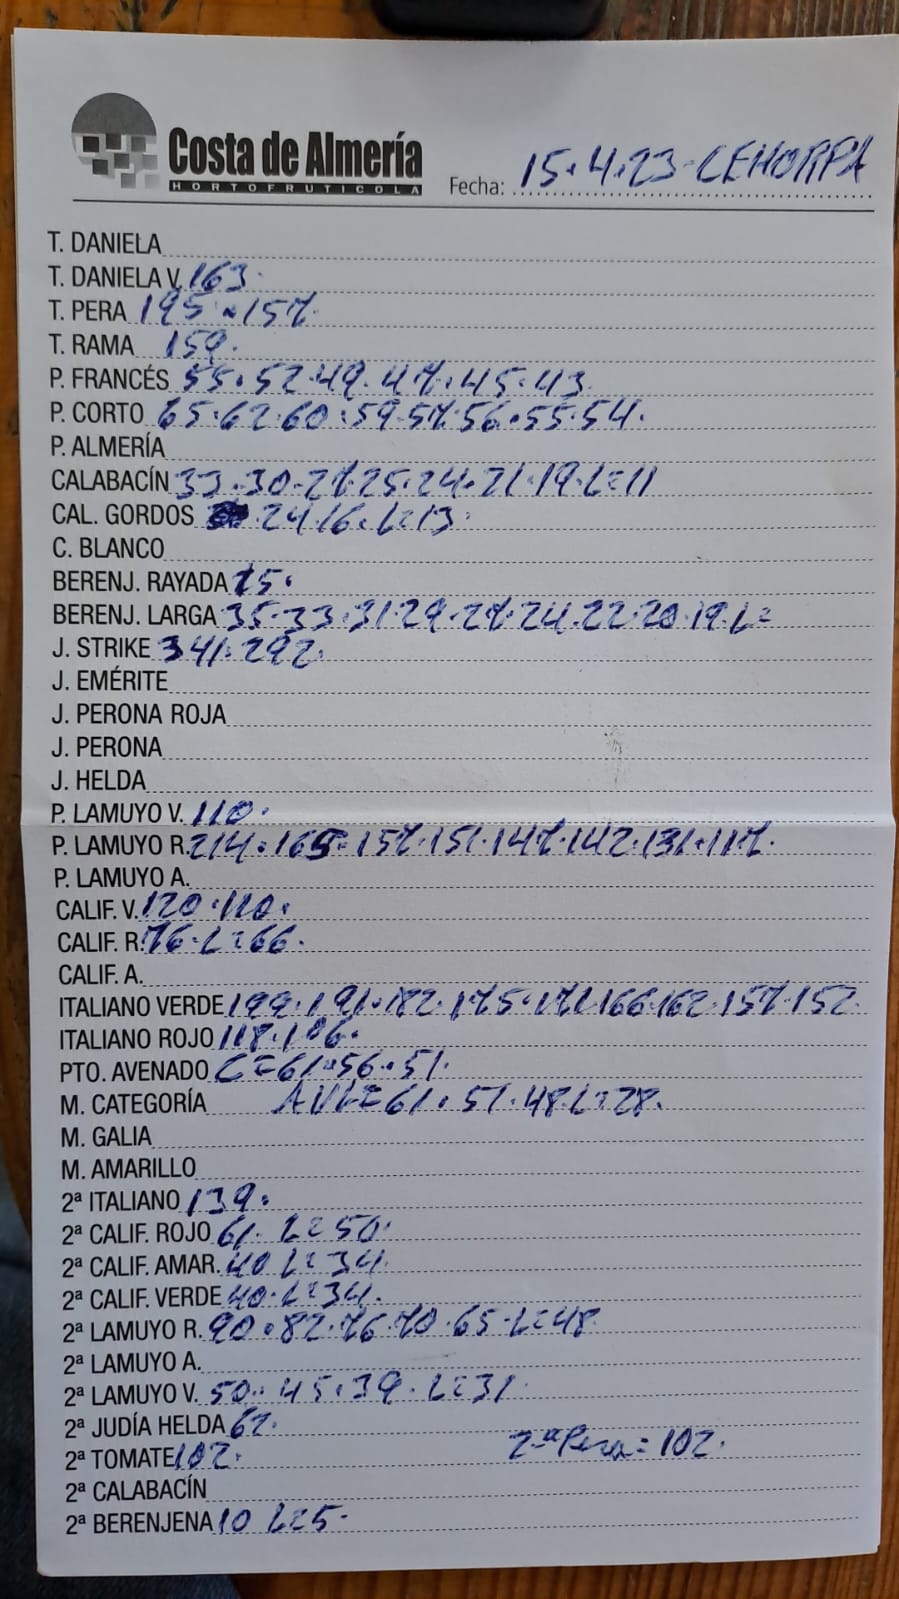 Costa de Almería
HORTOFRUTICOLA
Fecha: 15.4.23-CEHORPA
T. DANIELA
T. DANIELA V. 163.
T. PERA 195.157.
T. RAMA 159.
P. FRANCÉS 55.52.49.47.45.43.
P. CORTO 65.62.60.59.57.56.55.54.
P. ALMERÍA
CALABACÍN 33.30.27.25.24.21.19.L=11
CAL. GORDOS 24.16.L=13.
C. BLANCO
BERENJ. RAYADA 15.
BERENJ. LARGA 35.33.31.29.27.24.22.20.19.L=
J. STRIKE 341.292.
J. EMÉRITE
J. PERONA ROJA
J. PERONA
J. HELDA
P. LAMUYO V. 110.
P. LAMUYO R. 214.165.157.151.147.142.131.117.
P. LAMUYO A.
CALIF. V. 120.110.
CALIF. R. 76.L=66.
CALIF. A.
ITALIANO VERDE 199.191.182.175.171.166.162.157.152.
ITALIANO ROJO 118.106.
PTO. AVENADO C=61.56.51.
M. CATEGORÍA 61.51.48.L=28.
M. GALIA
M. AMARILLO
2ª ITALIANO 139.
2ª CALIF. ROJO 61. L=50.
2ª CALIF. AMAR. 40 L=34.
2ª CALIF. VERDE 40.L=34.
2ª LAMUYO R. 90.82.76.70.65.L=48
2ª LAMUYO A.
2ª LAMUYO V. 50.45.39.L=31.
2ª JUDÍA HELDA 62.
2ª TOMATE 102. 2ª Pera=102.
2ª CALABACÍN
2ª BERENJENA 10 L=5.